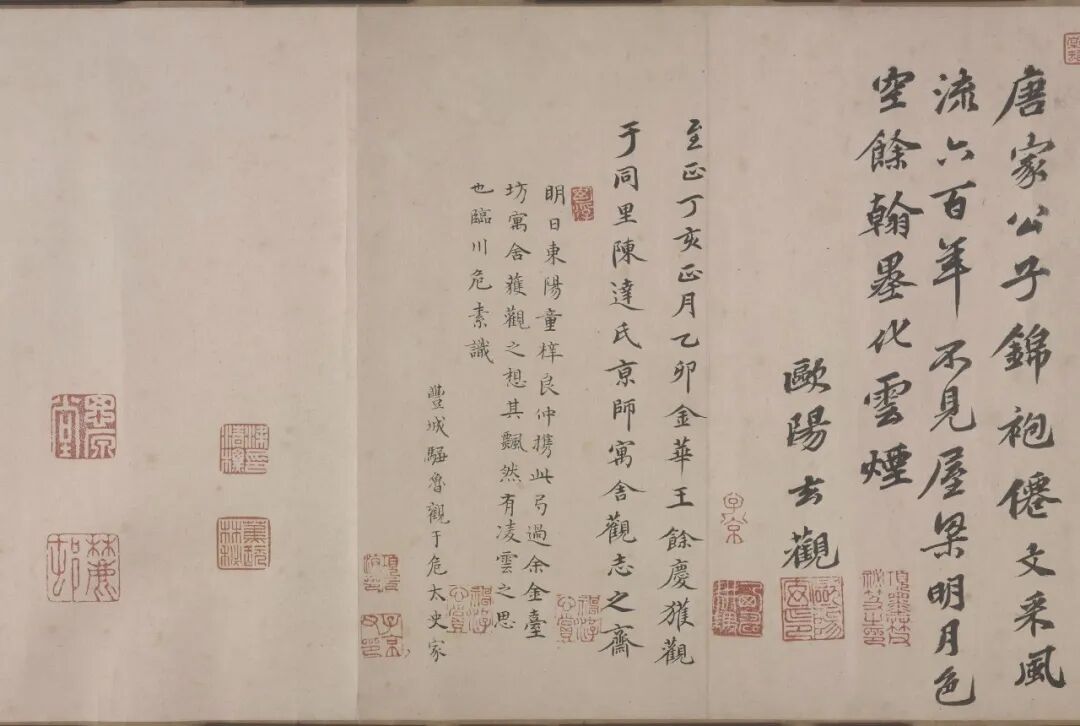 唐家公子錦袍僊文采風
流六百年不見屋梁明月色
空餘翰墨化雲煙
歐陽玄觀
子京
至正丁亥正月乙卯金華王餘慶獲觀
于同里陳達氏京師寓舍觀志之齋
明日東陽童梓良仲攜此弓過余金臺
坊寓舍獲觀之想其飄然有凌雲之思
也臨川危素識
豐城騶魯觀于危太史家